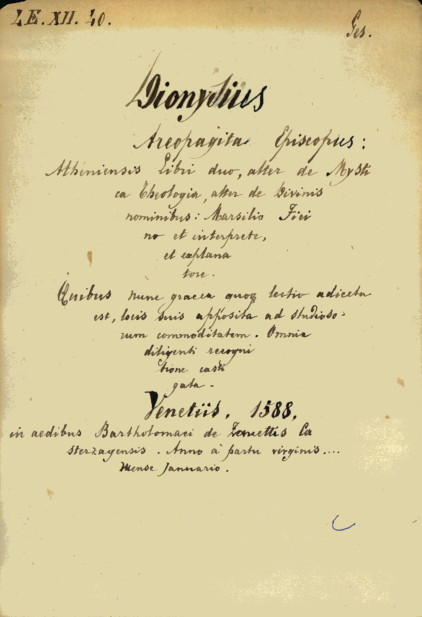 LE. XII. 40.
Ges.
Dionysius
Areopagita Episcopus:
Atheniensis Libri duo, alter de Mysti
ca Theologia, alter de Divinis
nominibus: Marsilio Fici
no et interprete,
et explana
tore.
Quibus nunc graeca quoq lectio adiecta
est, locis suis apposita ad studioso-
rum commoditatem. Omnia
diligenti recogni
tione casti
gata.
Venetiis. 1588.
in aedibus Bartholomaei de Zanettis Ca
sterzagensis. Anno à partu virginis....
Mense Januario.